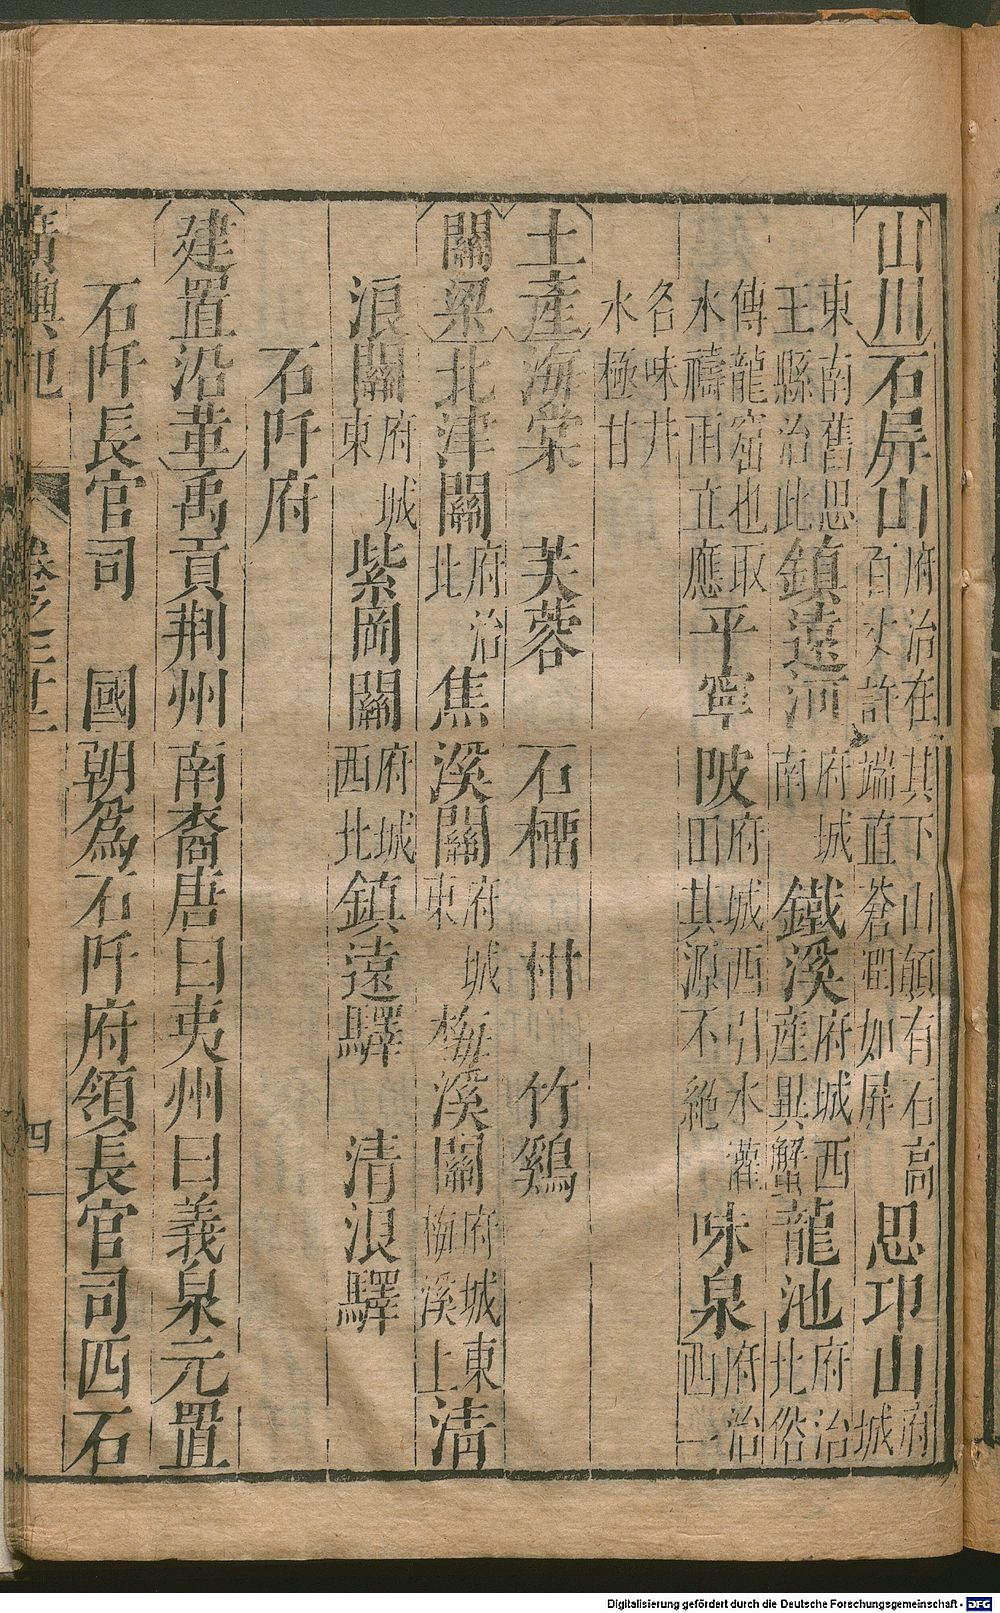 山川石屏山府治在其下山顛有石高百丈許端直蒼潤如屏思邛山府城
東南舊思王縣治此鎮遠河府城南鐵溪府城西產異蟹龍池府治北俗
傳龍窟也取水禱雨立應平寧陂府城西引水灌田其源不絕味泉府治西一
名味井水極甘
土產海棠 芙蓉 石櫺 柑 竹鷄
關梁北津關府治北焦溪關府城東梅溪關府城東梅溪上清
浪關府城東紫岡關府城西北鎮遠驛 清浪驛
石阡府
建置沿革禹貢荆州南裔唐曰夷州曰義泉元置
石阡長官司 國朝爲石阡府領長官司四石
廣輿記 卷之二十二 四
Digitalisierung gefördert durch die Deutsche Forschungsgemeinschaft - DFG